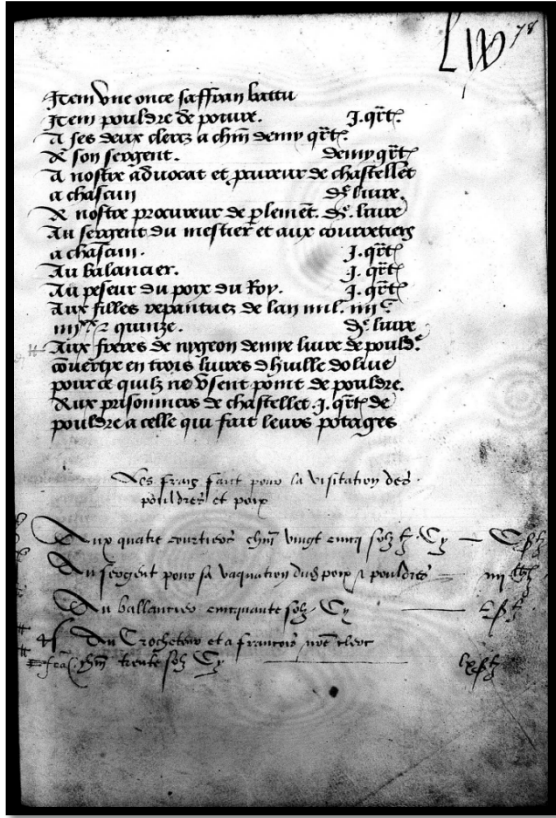 78
Item vne once saffran battu
Item pouldre de poiure. j. qrt
A ses deux clercz a chm demy qrt.
A son sergent. demy qrt
A nostre aduocat et procureur de chastellet
a chascun d. liure.
A nostre procureur de plement. d. liure
Au sergent du mestier et aux courretiers
a chascun. j. qrt
Au balancier. j. qrt
Au peseur du poix du Roy. j. qrt
Aux filles repanties de lan mil. iiii c
iiii xx & quinze. d. liure
Aux freres de nygeon demye liure de pould.
conuertye en trois liures dhuille doliue
pource quilz ne vsent point de pouldre.
Aux prisonniers de chastellet. j. qrt de
pouldre a celle qui fait leurs potages
Les fraiz faict pour la visitation des
pouldres et poix
Aux quatre courtiers chm vingt cinq solz t. Cy — C s t
Au sergent pour sa vaquation dud poix & pouldres — iiii
Au ballancier cinquante solz. Cy — L s t
Au Crocheteur et a francois nre clerc
chm trente solz Cy — lx s t